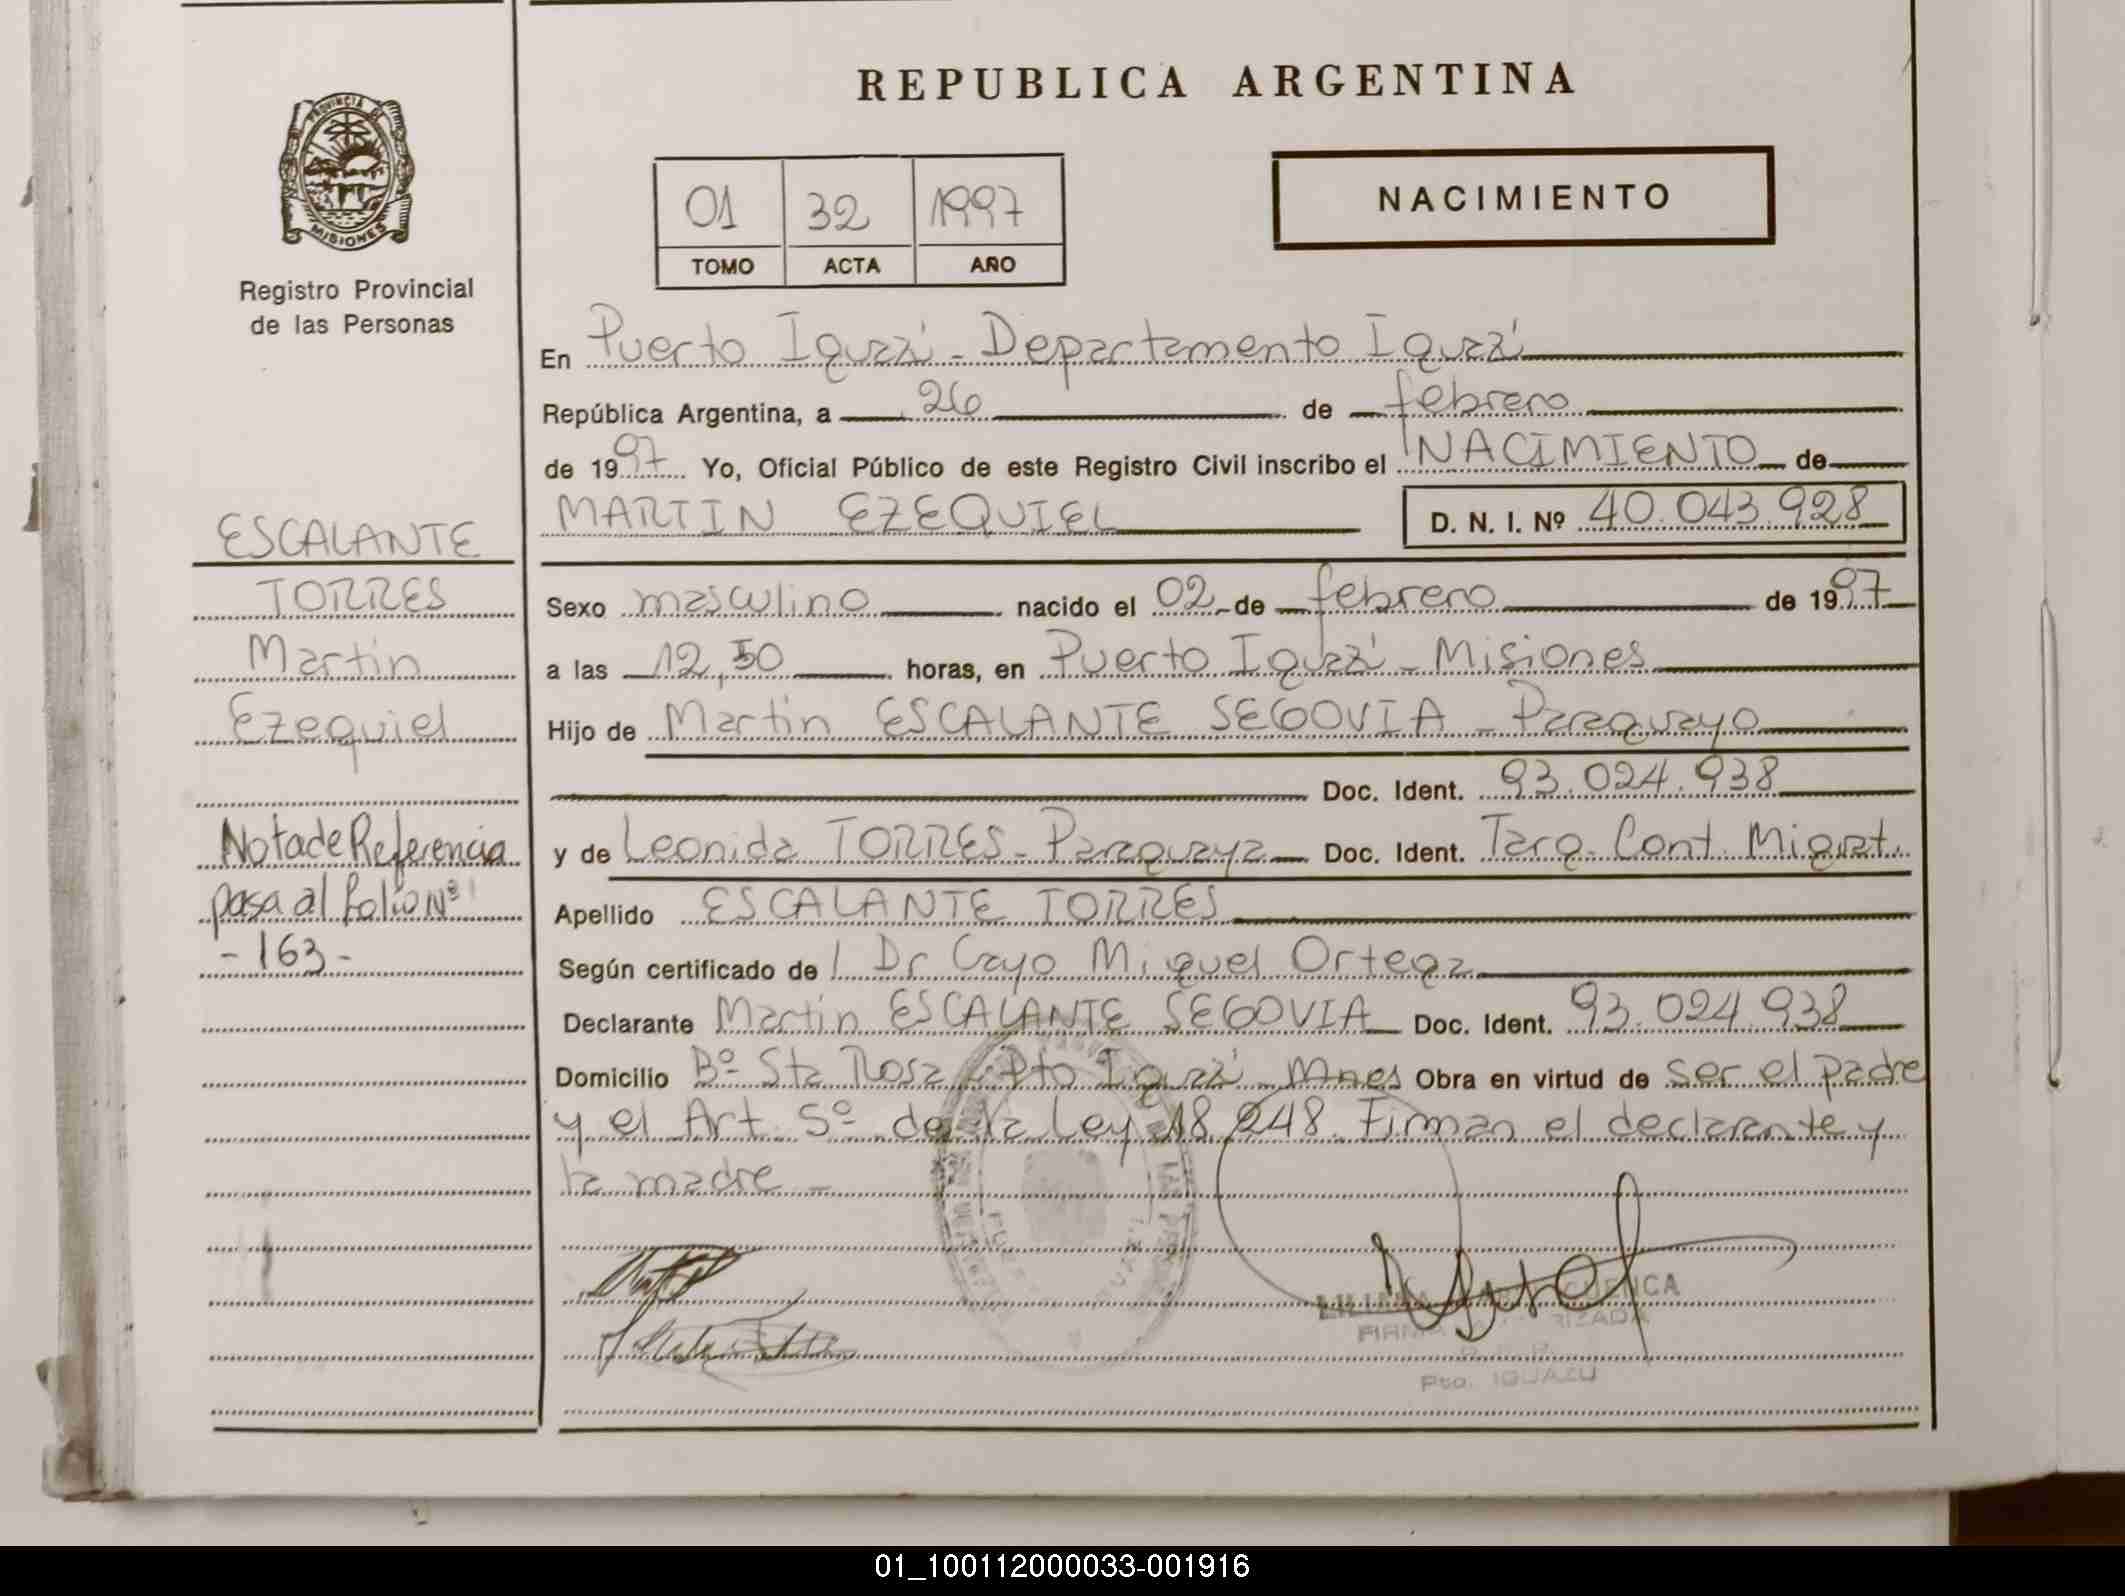 REPUBLICA ARGENTINA
PROVINCIA DE
MISIONES
Registro Provincial
de las Personas
01 32 1997
TOMO ACTA AÑO
NACIMIENTO
En Puerto Iguazú - Departamento Iguazú
República Argentina, a 26 de febrero
de 1997 Yo, Oficial Público de este Registro Civil inscribo el NACIMIENTO de
MARTIN EZEQUIEL D. N. I. Nº 40.043.928
ESCALANTE
TORRES
Martin
Ezequiel
Nota de Referencia
pasa al folio Nº
- 163 -
Sexo masculino nacido el 02 de febrero de 1997
a las 12,50 horas, en Puerto Iguazú - Misiones
Hijo de Martin ESCALANTE SEGOVIA - Paraguayo
Doc. Ident. 93.024.938
y de Leonida TORRES - Paraguaya Doc. Ident. Tarq. Cont. Migrat.
Apellido ESCALANTE TORRES
Según certificado de Dr Cayo Miguel Ortega
Declarante Martin ESCALANTE SEGOVIA Doc. Ident. 93.024.938
Domicilio Bº Sta Rosa Pto Iguazú Mnes Obra en virtud de ser el padre
y el Art. 5º de la Ley 18.248. Firman el declarante y
la madre -
FIRMA
Pto. IGUAZU
01_100112000033-001916